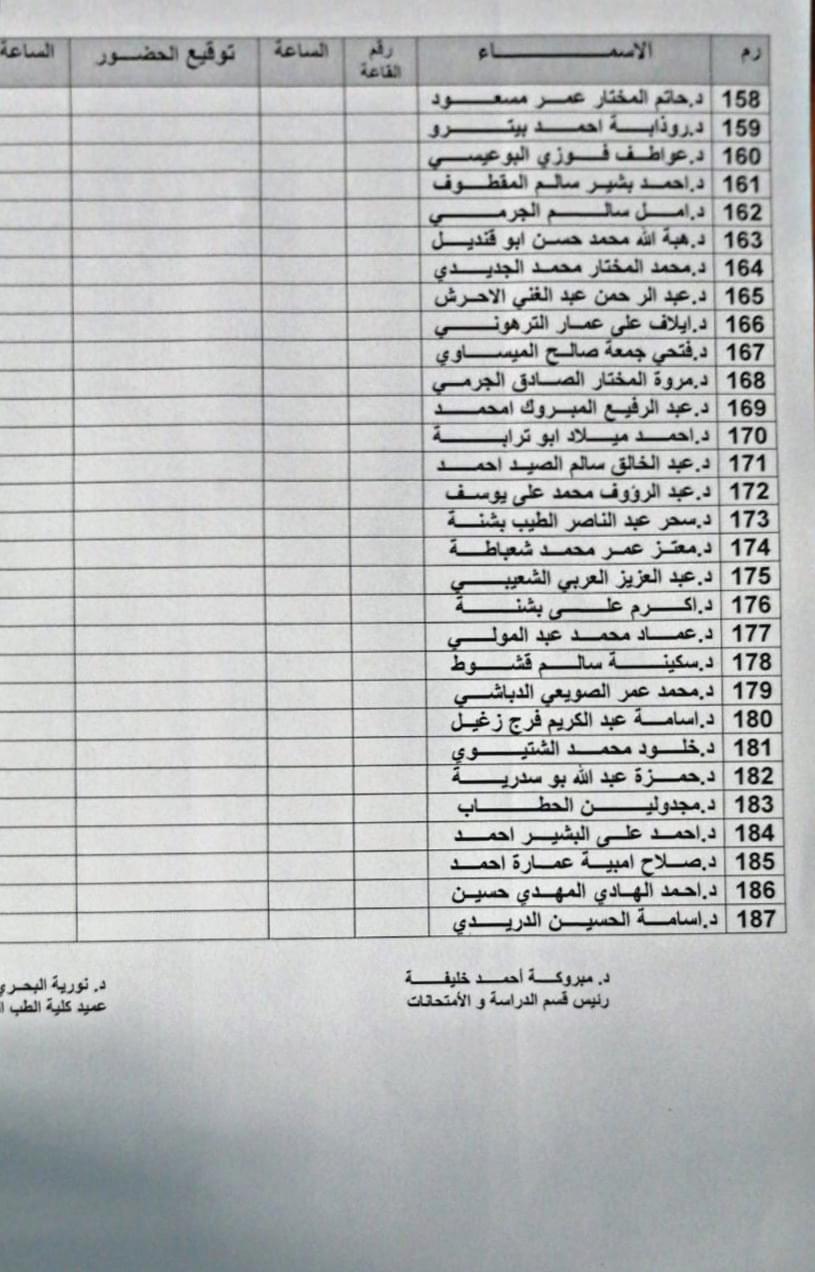 رم الاسمـــاء رقم القاعة الساعة توقيع الحضـــور الساعة
158 د.حاتم المختار عمر مسعود
159 د.روذابة احمد بيترو
160 د.عواطف فوزي البوعيسي
161 د.احمد بشير سالم المقطوف
162 د.امل سالم الجرمي
163 د.هبة الله محمد حسن ابو قنديل
164 د.محمد المختار محمد الجديدي
165 د.عبد الرحمن عبد الغني الاحرش
166 د.ايلاف على عمار الترهوني
167 د.فتحي جمعة صالح الميساوي
168 د.مروة المختار الصادق الجرمي
169 د.عبد الرفيع المبروك امحمد
170 د.احمد ميلاد ابو ترابة
171 د.عبد الخالق سالم الصيد احمد
172 د.عبد الرؤوف محمد على يوسف
173 د.سحر عبد الناصر الطيب بشنة
174 د.معتز عمر محمد شعباطة
175 د.عبد العزيز العربي الشعيبي
176 د.اكرم على بشنة
177 د.عماد محمد عبد المولي
178 د.سكينة سالم قشوط
179 د.محمد عمر الصويعي الدباشي
180 د.اسامة عبد الكريم فرج زغيل
181 د.خلود محمد الشتيوي
182 د.حمزة عبد الله بو سدرية
183 د.مجدولين الحطاب
184 د.احمد على البشير احمد
185 د.صلاح امبية عمارة احمد
186 د.احمد الهادي المهدي حسين
187 د.اسامة الحسين الدريدي
د. مبروكة أحمد خليفة د. نورية البحري
رئيس قسم الدراسة و الأمتحانات عميد كلية الطب